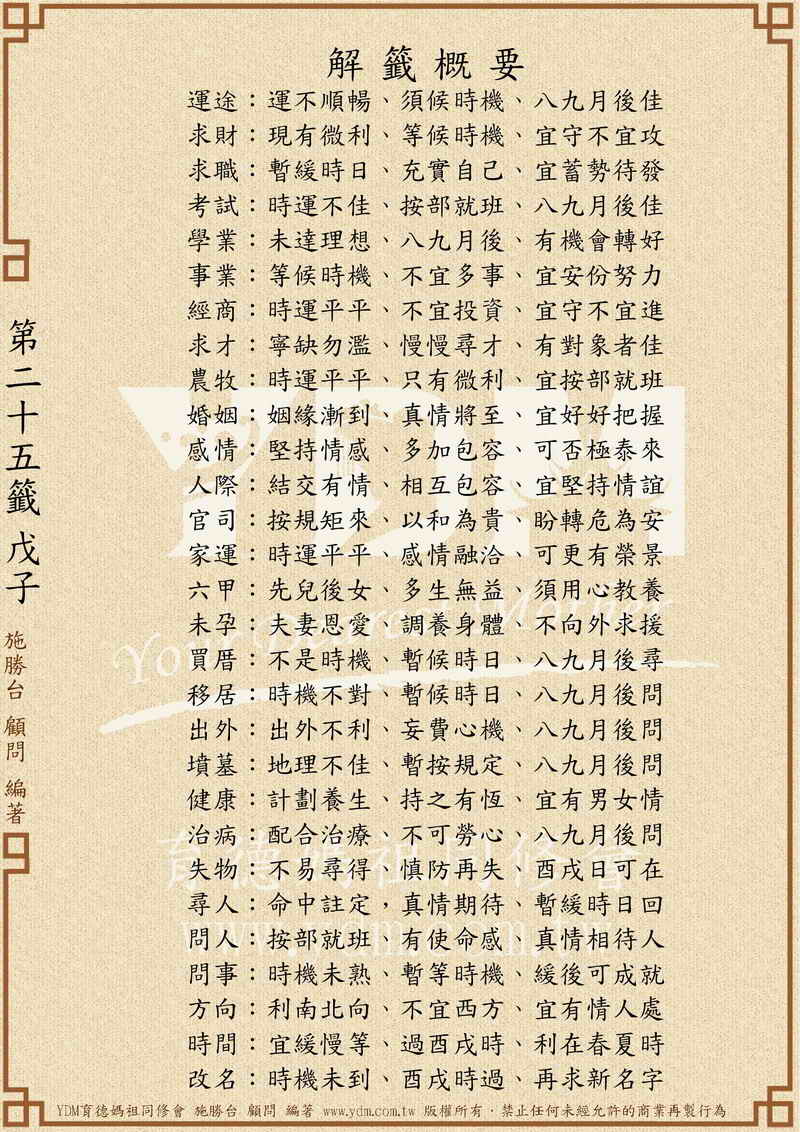 解籤概要
運途：運不順暢、須候時機、八九月後佳
求財：現有微利、等候時機、宜守不宜攻
求職：暫緩時日、充實自己、宜蓄勢待發
考試：時運不佳、按部就班、八九月後佳
學業：未達理想、八九月後、有機會轉好
事業：等候時機、不宜多事、宜安份努力
經商：時運平平、不宜投資、宜守不宜進
求才：寧缺勿濫、慢慢尋才、有對象者佳
農牧：時運平平、只有微利、宜按部就班
婚姻：姻緣漸到、真情將至、宜好好把握
感情：堅持情感、多加包容、可否極泰來
人際：結交有情、相互包容、宜堅持情誼
官司：按規矩來、以和為貴、盼轉危為安
家運：時運平平、感情融洽、可更有榮景
六甲：先兒後女、多生無益、須用心教養
未孕：夫妻恩愛、調養身體、不向外求援
買厝：不是時機、暫候時日、八九月後尋
移居：時機不對、暫候時日、八九月後問
出外：出外不利、妄費心機、八九月後問
墳墓：地理不佳、暫按規定、八九月後問
健康：計劃養生、持之有恆、宜有男女情
治病：配合治療、不可勞心、八九月後問
失物：不易尋得、慎防再失、酉戌日可在
尋人：命中註定，真情期待、暫緩時日回
問人：按部就班、有使命感、真情相待人
問事：時機未熟、暫等時機、緩後可成就
方向：利南北向、不宜西方、宜有情人處
時間：宜緩慢等、過酉戌時、利在春夏時
改名：時機未到、酉戌時過、再求新名字
第二十五籤 戊子
施勝台 顧問 編著
YDM
育德媽祖同修會
YDM育德媽祖同修會 施勝台 顧問 編著 www.ydm.com.tw 版權所有‧禁止任何未經允許的商業再製行為